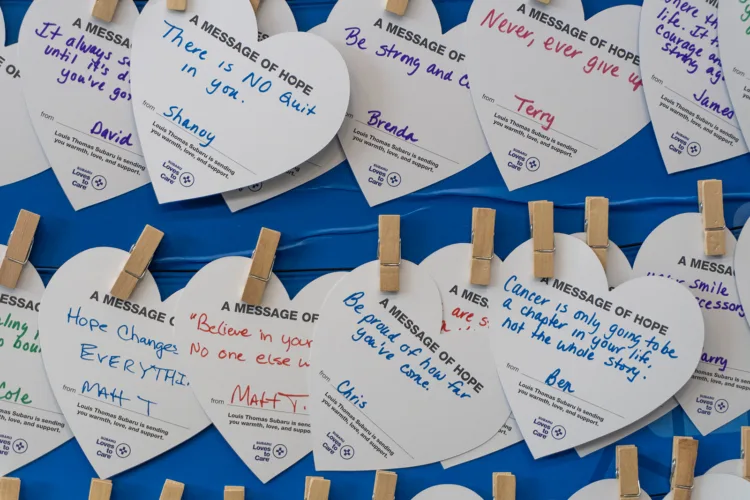 A MESSA
It always s
until it's d
you've go
from
David
Louis Thomas Subaru is sending
you warmth, love, and support.
SUBARU
Loves
to
Care
A MESSAGE OF HOPE
There is NO Quit
in you.
from
Shanoy
Louis Thomas Subaru is sending
you warmth, love, and support.
SUBARU
Loves
to
Care
A MESSAGE OF
Be strong and
from
Brenda
Louis Thomas Subaru is sending
you warmth, love, and support.
SUBARU
Loves
to
Care
A MESSAGE OF HOPE
Never, ever give up
from
Terry
Louis Thomas Subaru is sending
you warmth, love, and support.
SUBARU
Loves
to
Care
where th
life. It
Courage a
strong ag
from
James
Louis Thomas Subaru is sending
you warmth, love, and support.
SUBARU
Loves
to
Care
A MESSAGE
from
Cole
Louis Thomas Subaru is sending
you warmth, love, and support.
SUBARU
Loves
to
Care
A MESSAGE OF HOPE
Hope Changes
EVERYTHI
from
MATT T
Louis Thomas Subaru is sending
you warmth, love, and support.
SUBARU
Loves
to
Care
A MESSAGE OF HOPE
"Believe in your
No one else w
from
MATT T.
Louis Thomas Subaru is sending
you warmth, love, and support.
SUBARU
Loves
to
Care
A MESSAGE OF HOPE
Be proud of how far
you've come.
from
Chris
Louis Thomas Subaru is sending
you warmth, love, and support.
SUBARU
Loves
to
Care
A MES
are s
A MESSAGE OF HOPE
Cancer is only going to be
a chapter in your life,
not the whole story.
from
Ben
Louis Thomas Subaru is sending
you warmth, love, and support.
SUBARU
Loves
to
Care
A MESSAGE
your smile
from
Louis Thomas Subaru is sending
you warmth, love, and support.
SUBARU
Loves
to
Care